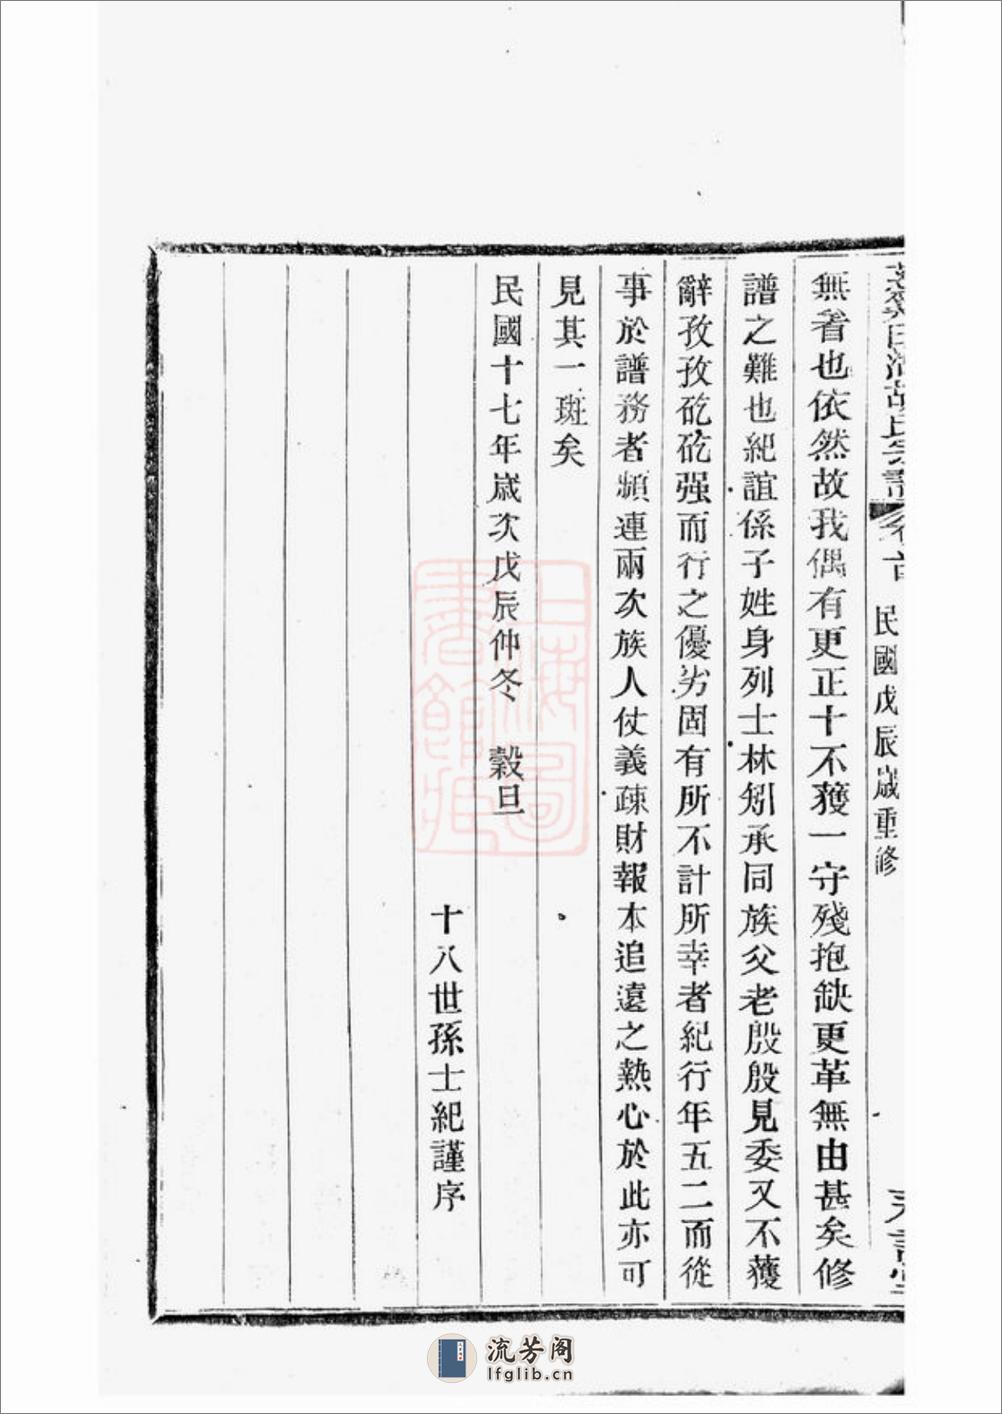 胡氏宗譜 卷首 民國戊辰歲重修
無着也依然故我偶有更正十不獲一守殘抱缺更革無由甚矣修
譜之難也紀誼係子姓身列士林矧承同族父老殷殷見委又不獲
辭孜孜矻矻强而行之優劣固有所不計所幸者紀行年五二而從
事於譜務者頻連兩次族人仗義疎財報本追遠之熱心於此亦可
見其一斑矣
民國十七年歲次戊辰仲冬 穀旦
十八世孫士紀謹序
上海圖書館藏
流芳阁
lfglib.cn